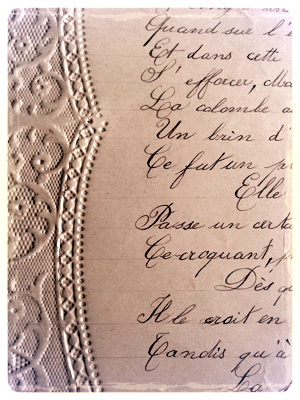 Quand sur l'é
Et dans cette
S'efforcer, Ma
La colombe a
Un brin d'
Ce fut un p
Elle
Passe un certa
Ce croquant, p
Dès q
Il le croit en
Tandis qu'à
La